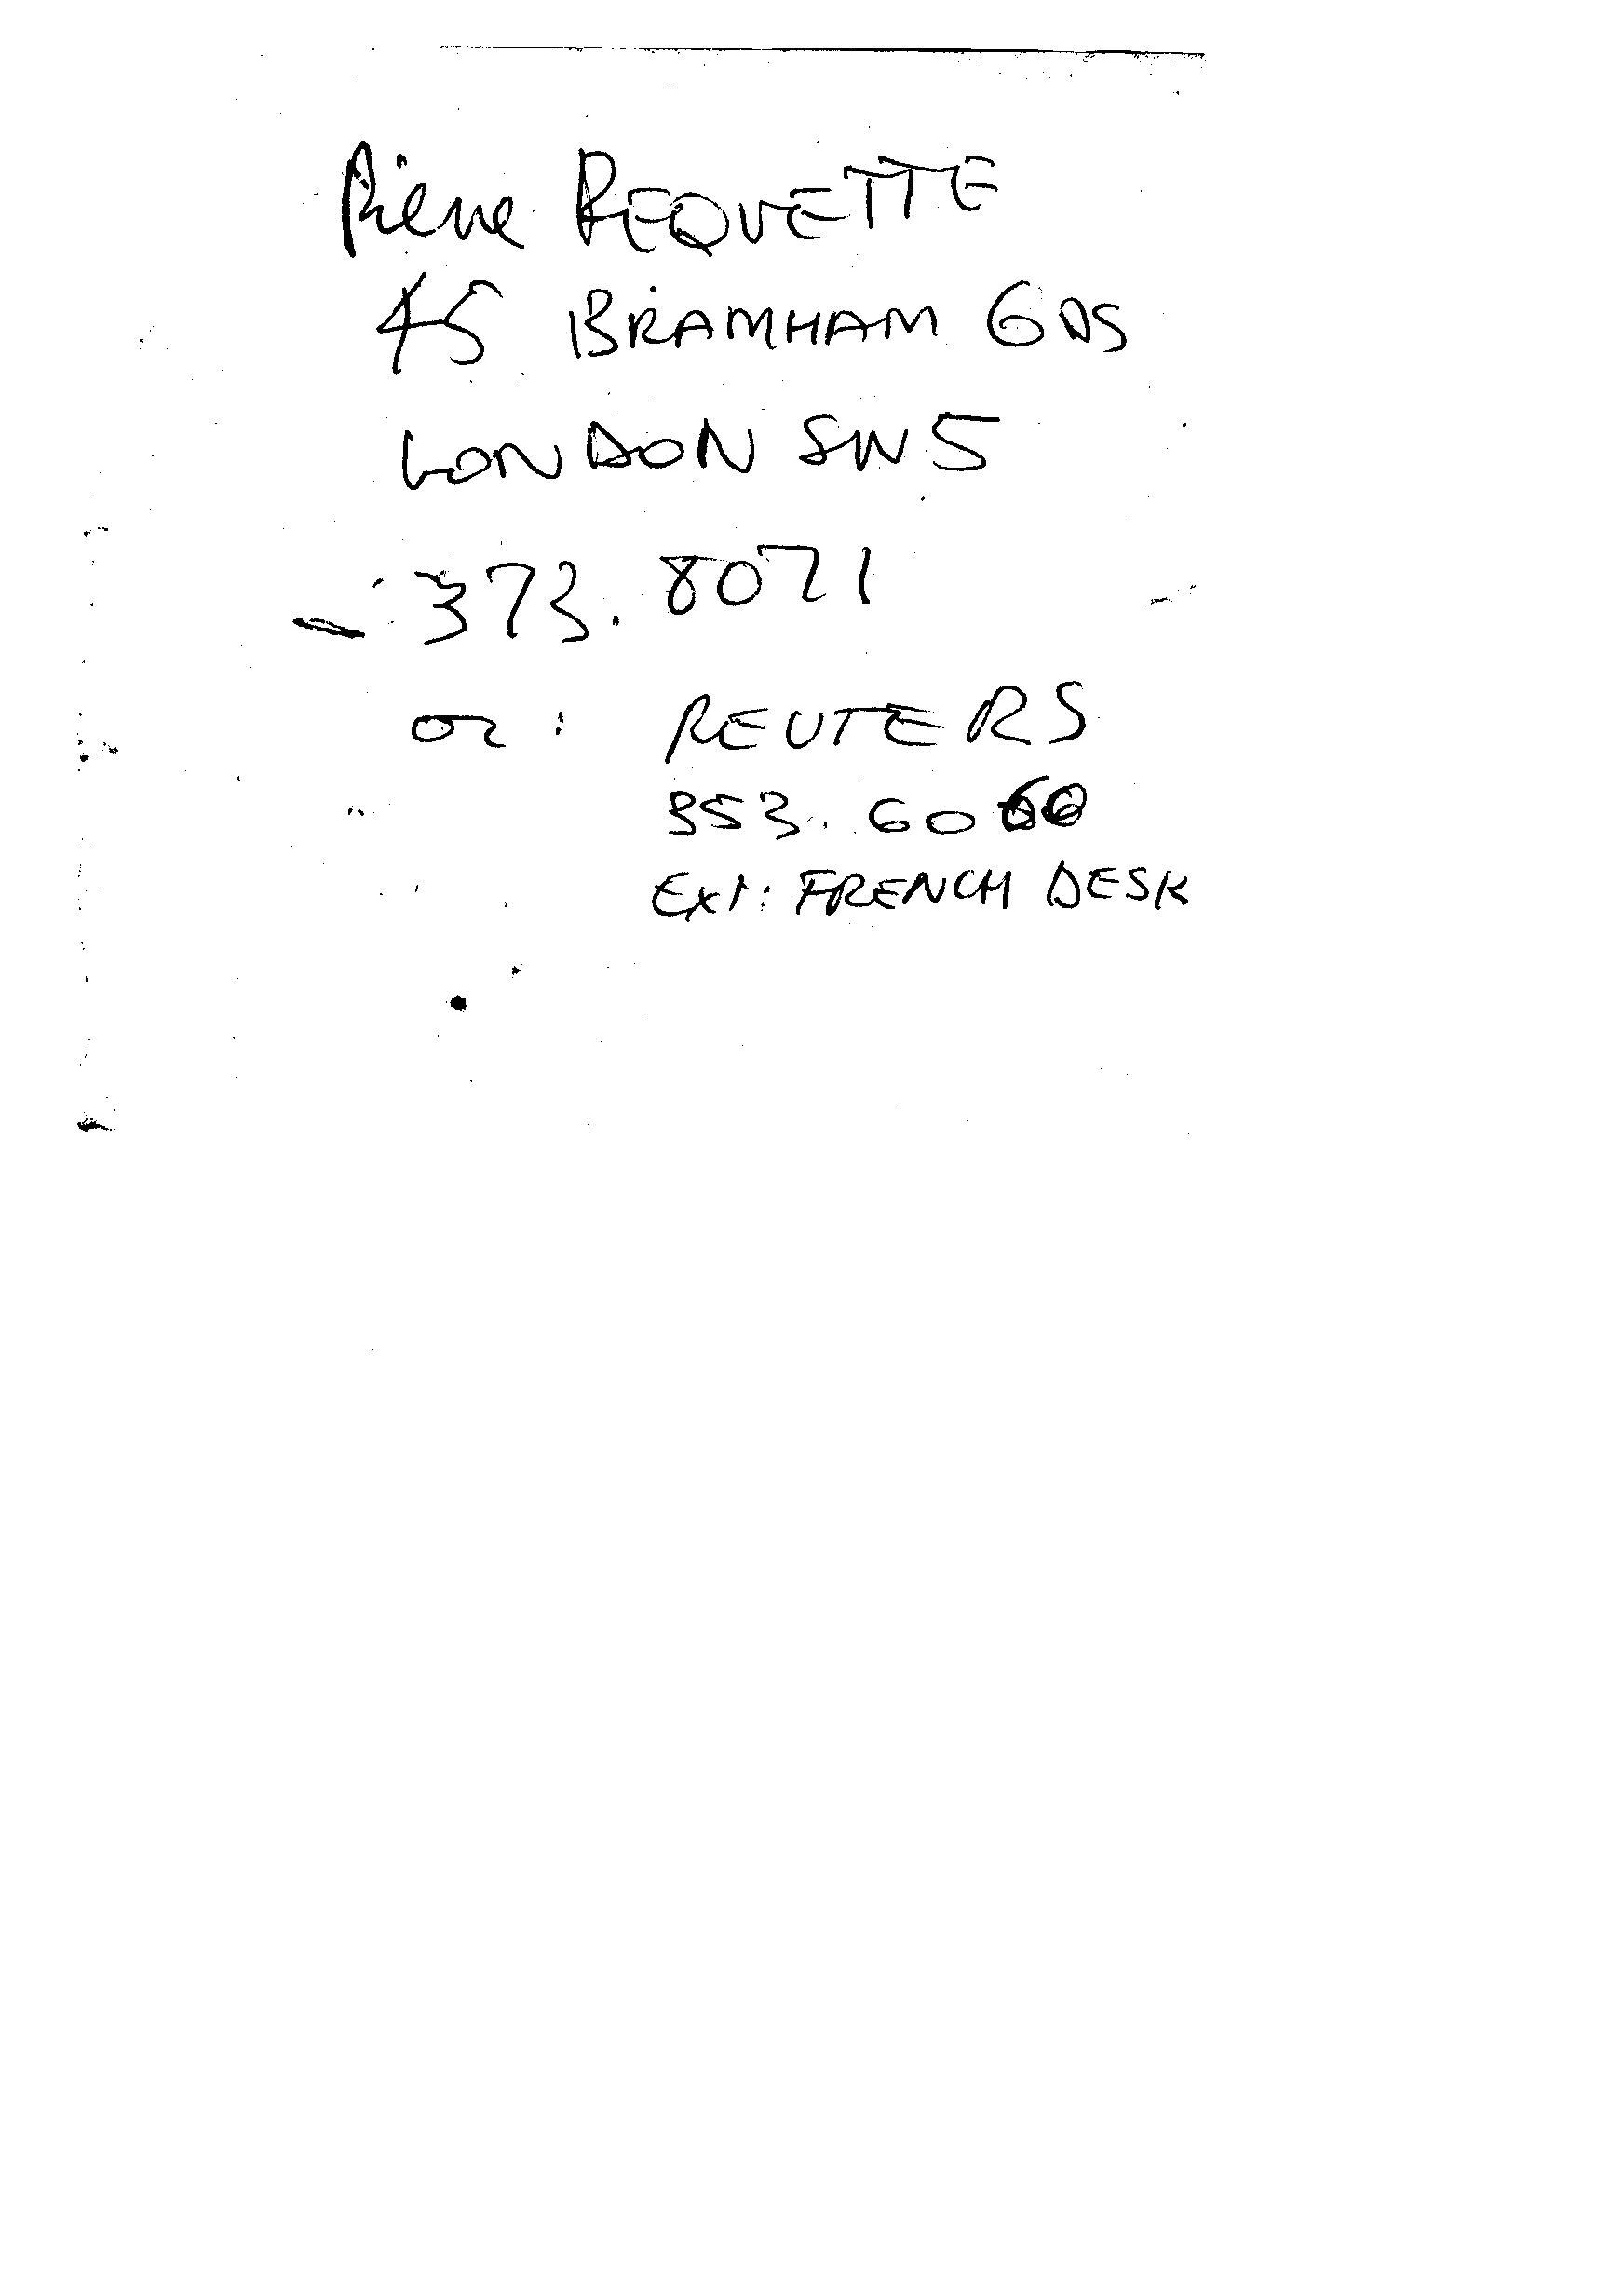 Pierre REQUETTE
45 BRAMHAM GDS
LONDON SW5
- 373.8071
or : REUTERS
353.6060
Ext: FRENCH DESK